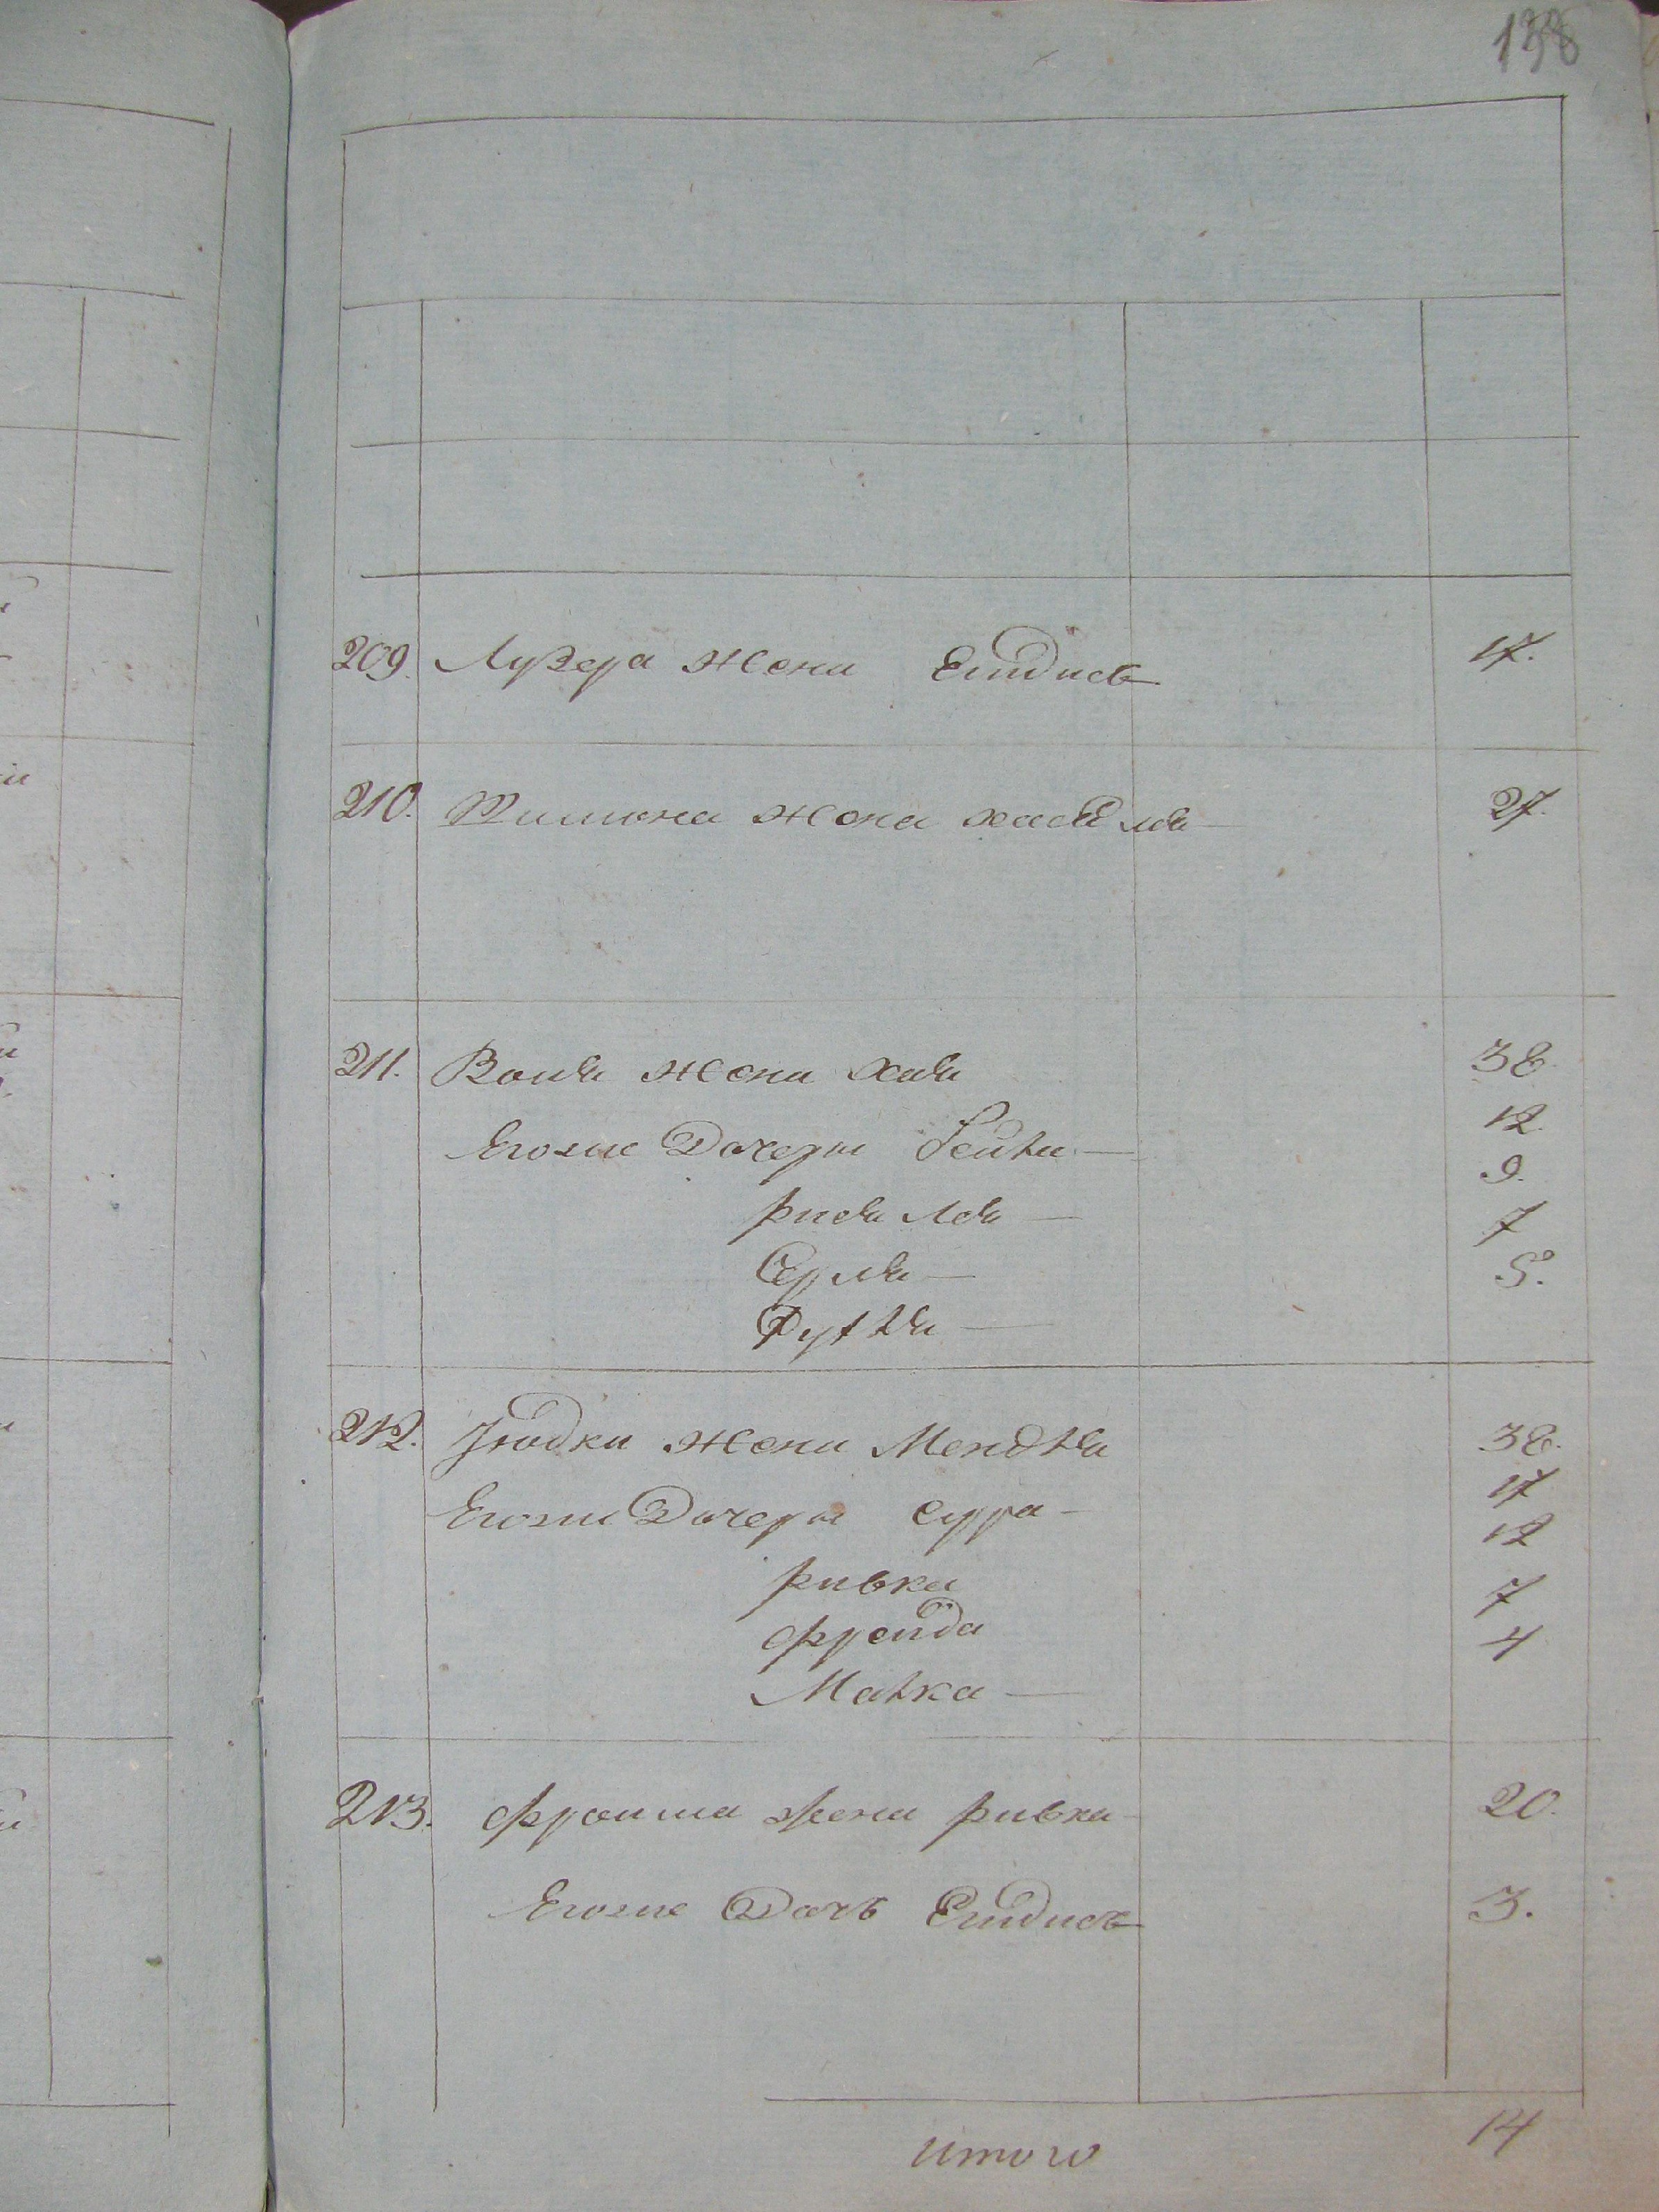 138
209. Лузера Жена Ейдись 17.
210. Шимона Жена хасѣля 27.
211. Вольѣ Жена Хая 38.
Егоже Дочеры Гейта 12.
рисѣля 9.
Серля 7
5.
212. Іюдки Жена Мендля 38.
Егоже Дочеры Сурра 17
ривка 12
фрейда 7
Малка 4
213. фроима жена ривка 20.
Егоже Дочь Ейдись 3.
итого 14